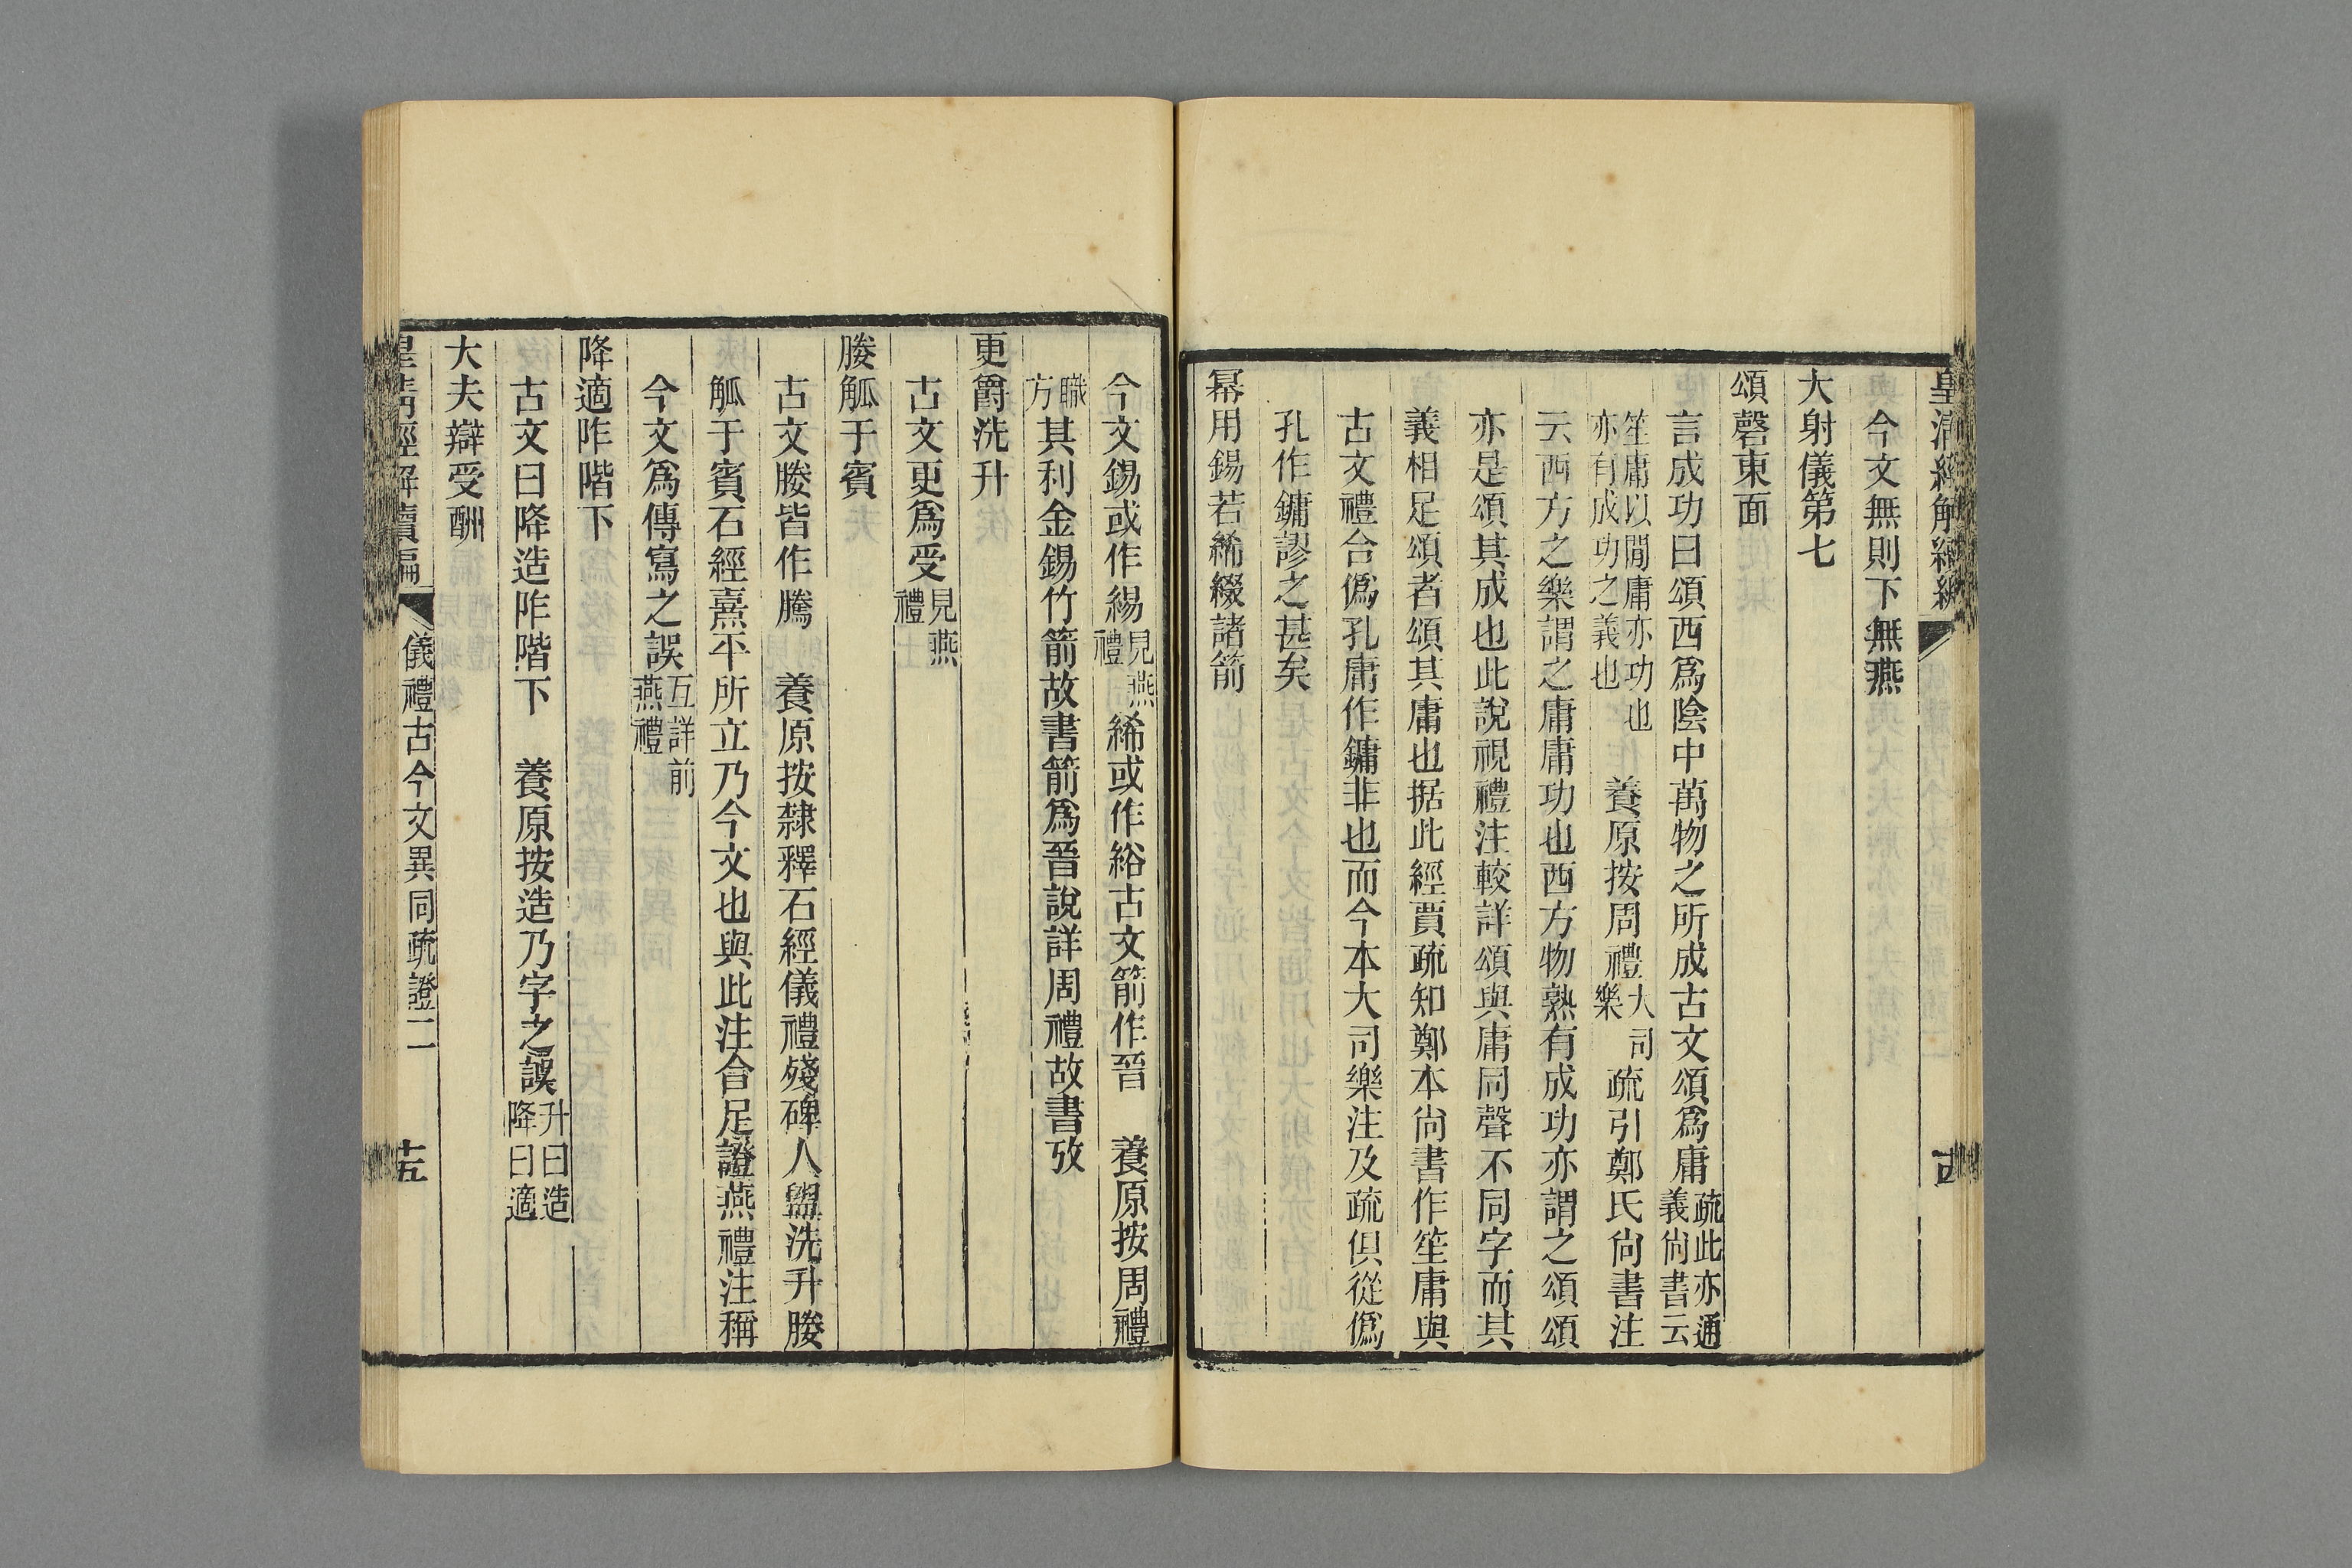 皇清經解續編
今文無則下無燕
大射儀第七
頌磬東面
言成功曰頌西爲陰中萬物之所成古文頌爲庸疏此亦通義尙書云
笙庸以閒庸亦功也亦有成功之義也 養原按周禮大司樂疏引鄭氏尙書注
云西方之樂謂之庸庸功也西方物熟有成功亦謂之頌頌
亦是頌其成也此說視禮注較詳頌與庸同聲不同字而其
義相足頌者頌其庸也据此經賈疏知鄭本尙書作笙庸與
古文禮合僞孔庸作鏞非也而今本大司樂注及疏俱從僞
孔作鏞謬之甚矣
冪用錫若絺綴諸箭
今文錫或作緆見燕禮絺或作綌古文箭作晉 養原按周禮
職方其利金錫竹箭故書箭爲晉說詳周禮故書攷
更爵洗升
古文更爲受見燕禮
媵觚于賓
古文媵皆作騰 養原按隸釋石經儀禮殘碑人盥洗升媵
觚于賓石經熹平所立乃今文也與此注合足證燕禮注稱
今文爲傳寫之誤互詳前燕禮
降適阼階下
古文曰降造阼階下 養原按造乃字之誤升曰造降曰適
大夫辯受酬
皇清經解續編 儀禮古今文異同疏證二 十五